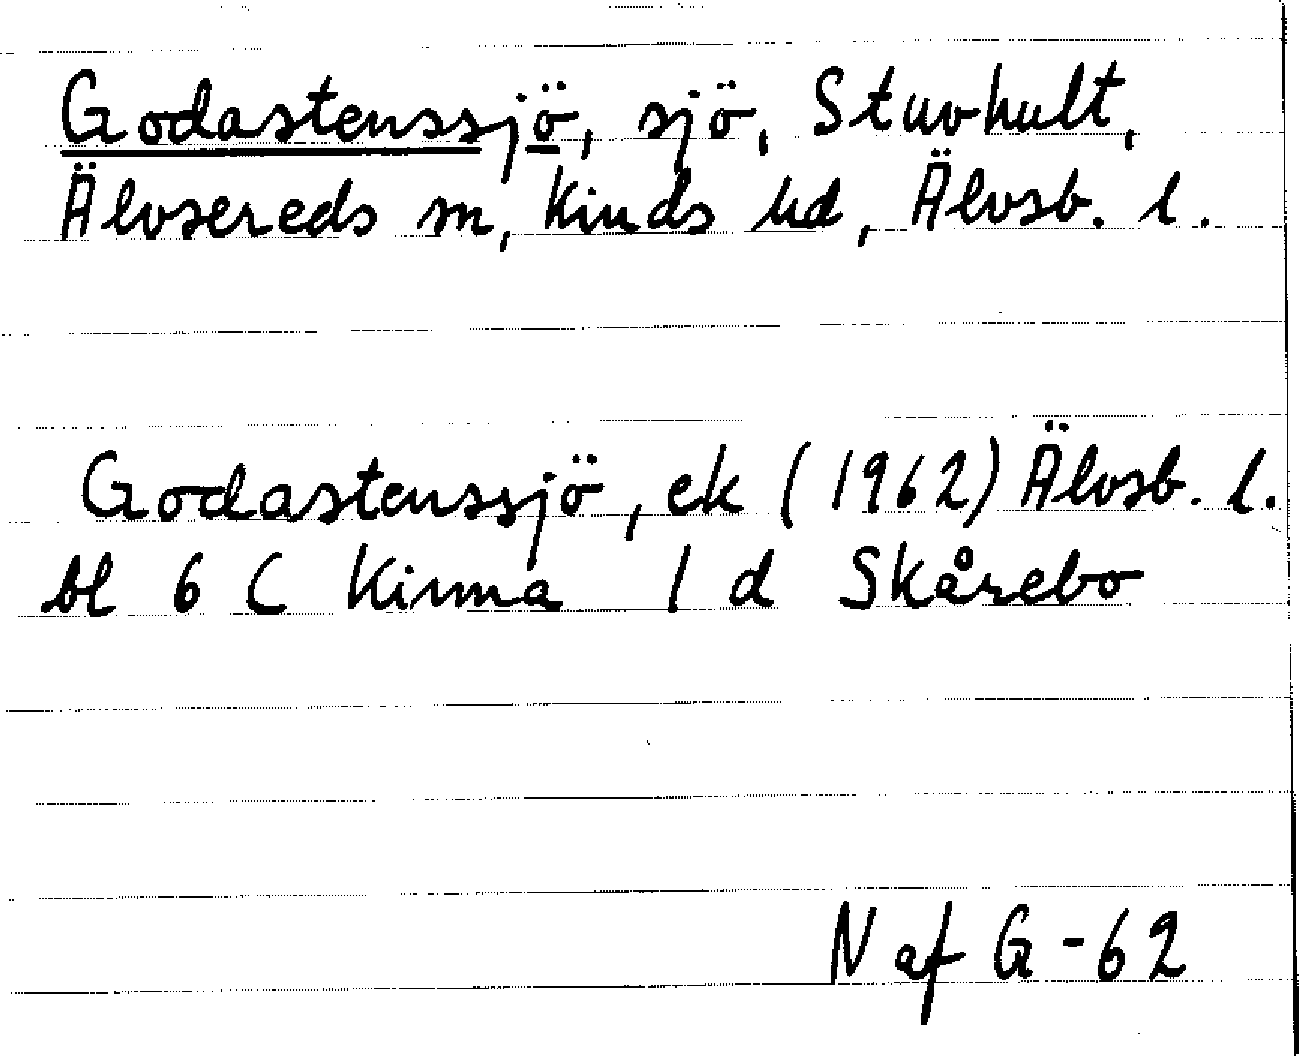 Godastenssjö, sjö, Stuvhult,
Älvsereds sn, Kinds hd, Älvsb. l.
Godastenssjö, ek (1962) Älvsb. l.
bl 6 C Kinna 1 d Skårebo
N af G-62